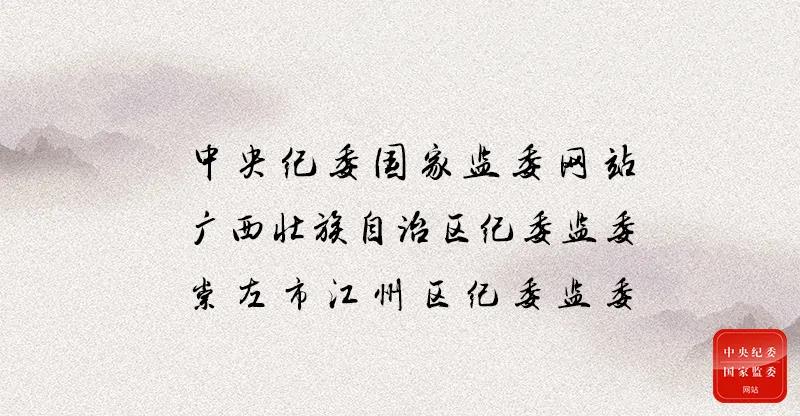 中央纪委国家监委网站
广西壮族自治区纪委监委
崇左市江州区纪委监委
中央纪委
国家监委
网站